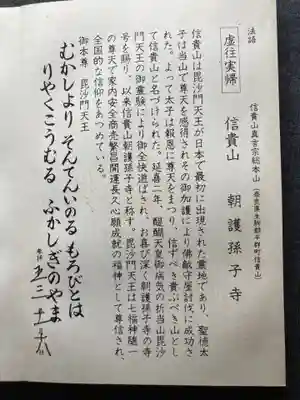 法語
信貴山真言宗総本山（奈良県生駒郡平群町信貴山）
虚往実帰
信貴山　朝護孫子寺
信貴山は毘沙門天王が日本で最初に出現された霊地であり、聖徳太
子は当山で尊天を感得されその御加護により佛敵守屋討伐に成功さ
れた。よって太子は報恩に尊天をまつり、信ずべき貴ぶべき山とし
て信貴山と名づけられた。延喜二年、醍醐天皇御病気の折当山毘沙
門天王の御霊験により御全快遊ばされ、お喜び深く朝護孫子寺の寺
号を賜り、以来信貴山朝護孫子寺と称す。毘沙門天王は七福神随一
の尊天で家内安全商売繁昌開運長久心願成就の福神として尊信され、
全国的な信仰をあつめている。
御本尊　毘沙門天王
むかしより　そんてんいのる　もろびとは
りやくこうむる　ふかしぎのやま